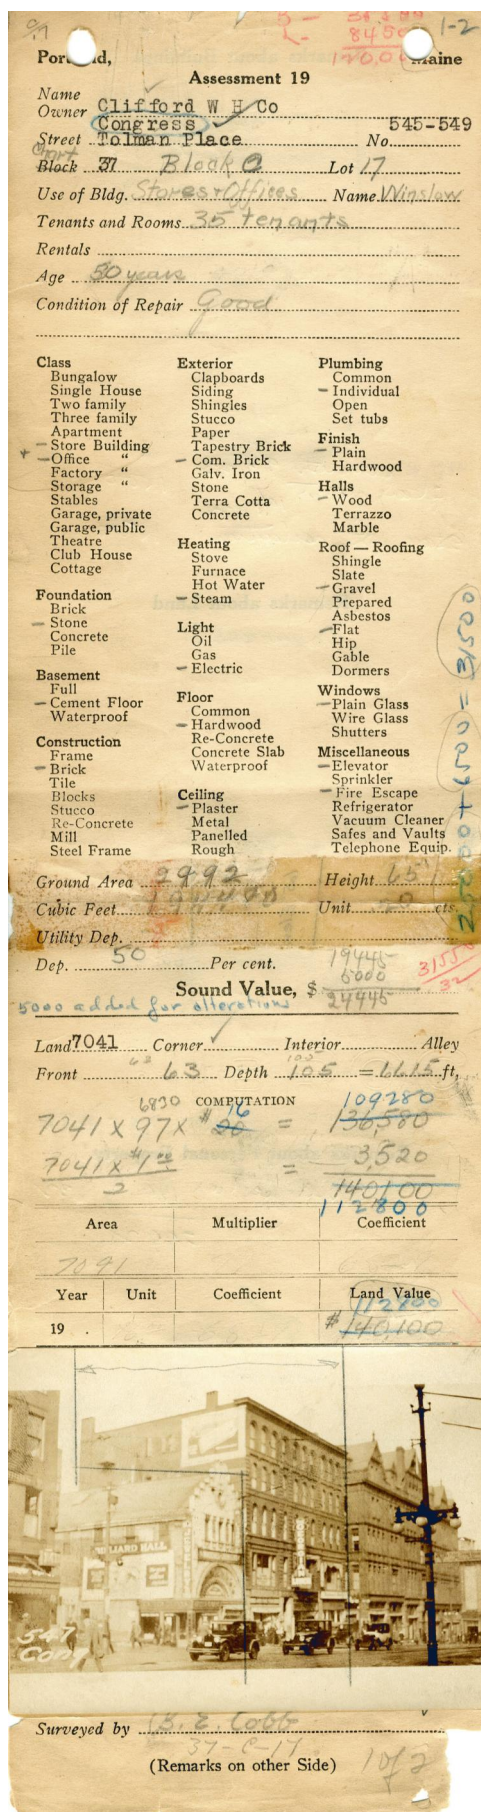 1-2
84,500
Portland, Maine
Assessment 19
Name
Owner Clifford W H Co
Congress 545-549
Street Tolman Place No.
Chart
Block 37 Block C Lot 17
Use of Bldg. Stores + Offices Name Winslow
Tenants and Rooms 35 tenants
Rentals
Age 50 years
Condition of Repair Good
Class
Bungalow
Single House
Two family
Three family
Apartment
+ - Store Building
- Office "
Factory "
Storage "
Stables
Garage, private
Garage, public
Theatre
Club House
Cottage
Foundation
Brick
- Stone
Concrete
Pile
Basement
Full
- Cement Floor
Waterproof
Construction
Frame
- Brick
Tile
Blocks
Stucco
Re-Concrete
Mill
Steel Frame
Exterior
Clapboards
Siding
Shingles
Stucco
Paper
Tapestry Brick
- Com. Brick
Galv. Iron
Stone
Terra Cotta
Concrete
Heating
Stove
Furnace
Hot Water
- Steam
Light
Oil
Gas
- Electric
Floor
Common
- Hardwood
Re-Concrete
Concrete Slab
Waterproof
Ceiling
- Plaster
Metal
Panelled
Rough
Plumbing
Common
- Individual
Open
Set tubs
Finish
- Plain
Hardwood
Halls
- Wood
Terrazzo
Marble
Roof — Roofing
Shingle
Slate
- Gravel
Prepared
Asbestos
- Flat
Hip
Gable
Dormers
Windows
- Plain Glass
Wire Glass
Shutters
Miscellaneous
- Elevator
Sprinkler
- Fire Escape
Refrigerator
Vacuum Cleaner
Safes and Vaults
Telephone Equip.
Ground Area 2992 Height 65'
Cubic Feet 194480 Unit cts.
Utility Dep.
Dep. 50 Per cent.
19445
5000
31550
32
Sound Value, $ 24445
5000 added for alterations
Land 7041 Corner ✓ Interior Alley
63 105
Front 63 Depth 105 = 6615 ft,
6830 COMPUTATION 109280
16
7041 x 97 x $20 = 136,580
7041 x $1.00 = 3,520
2
140100
112800
Area Multiplier Coefficient
7091
Year Unit Coefficient Land Value
112800
19 . $140,100
BILLIARD HALL
547
Cong
Surveyed by B. E. Cobb
37-C-17
(Remarks on other Side)
1 of 2